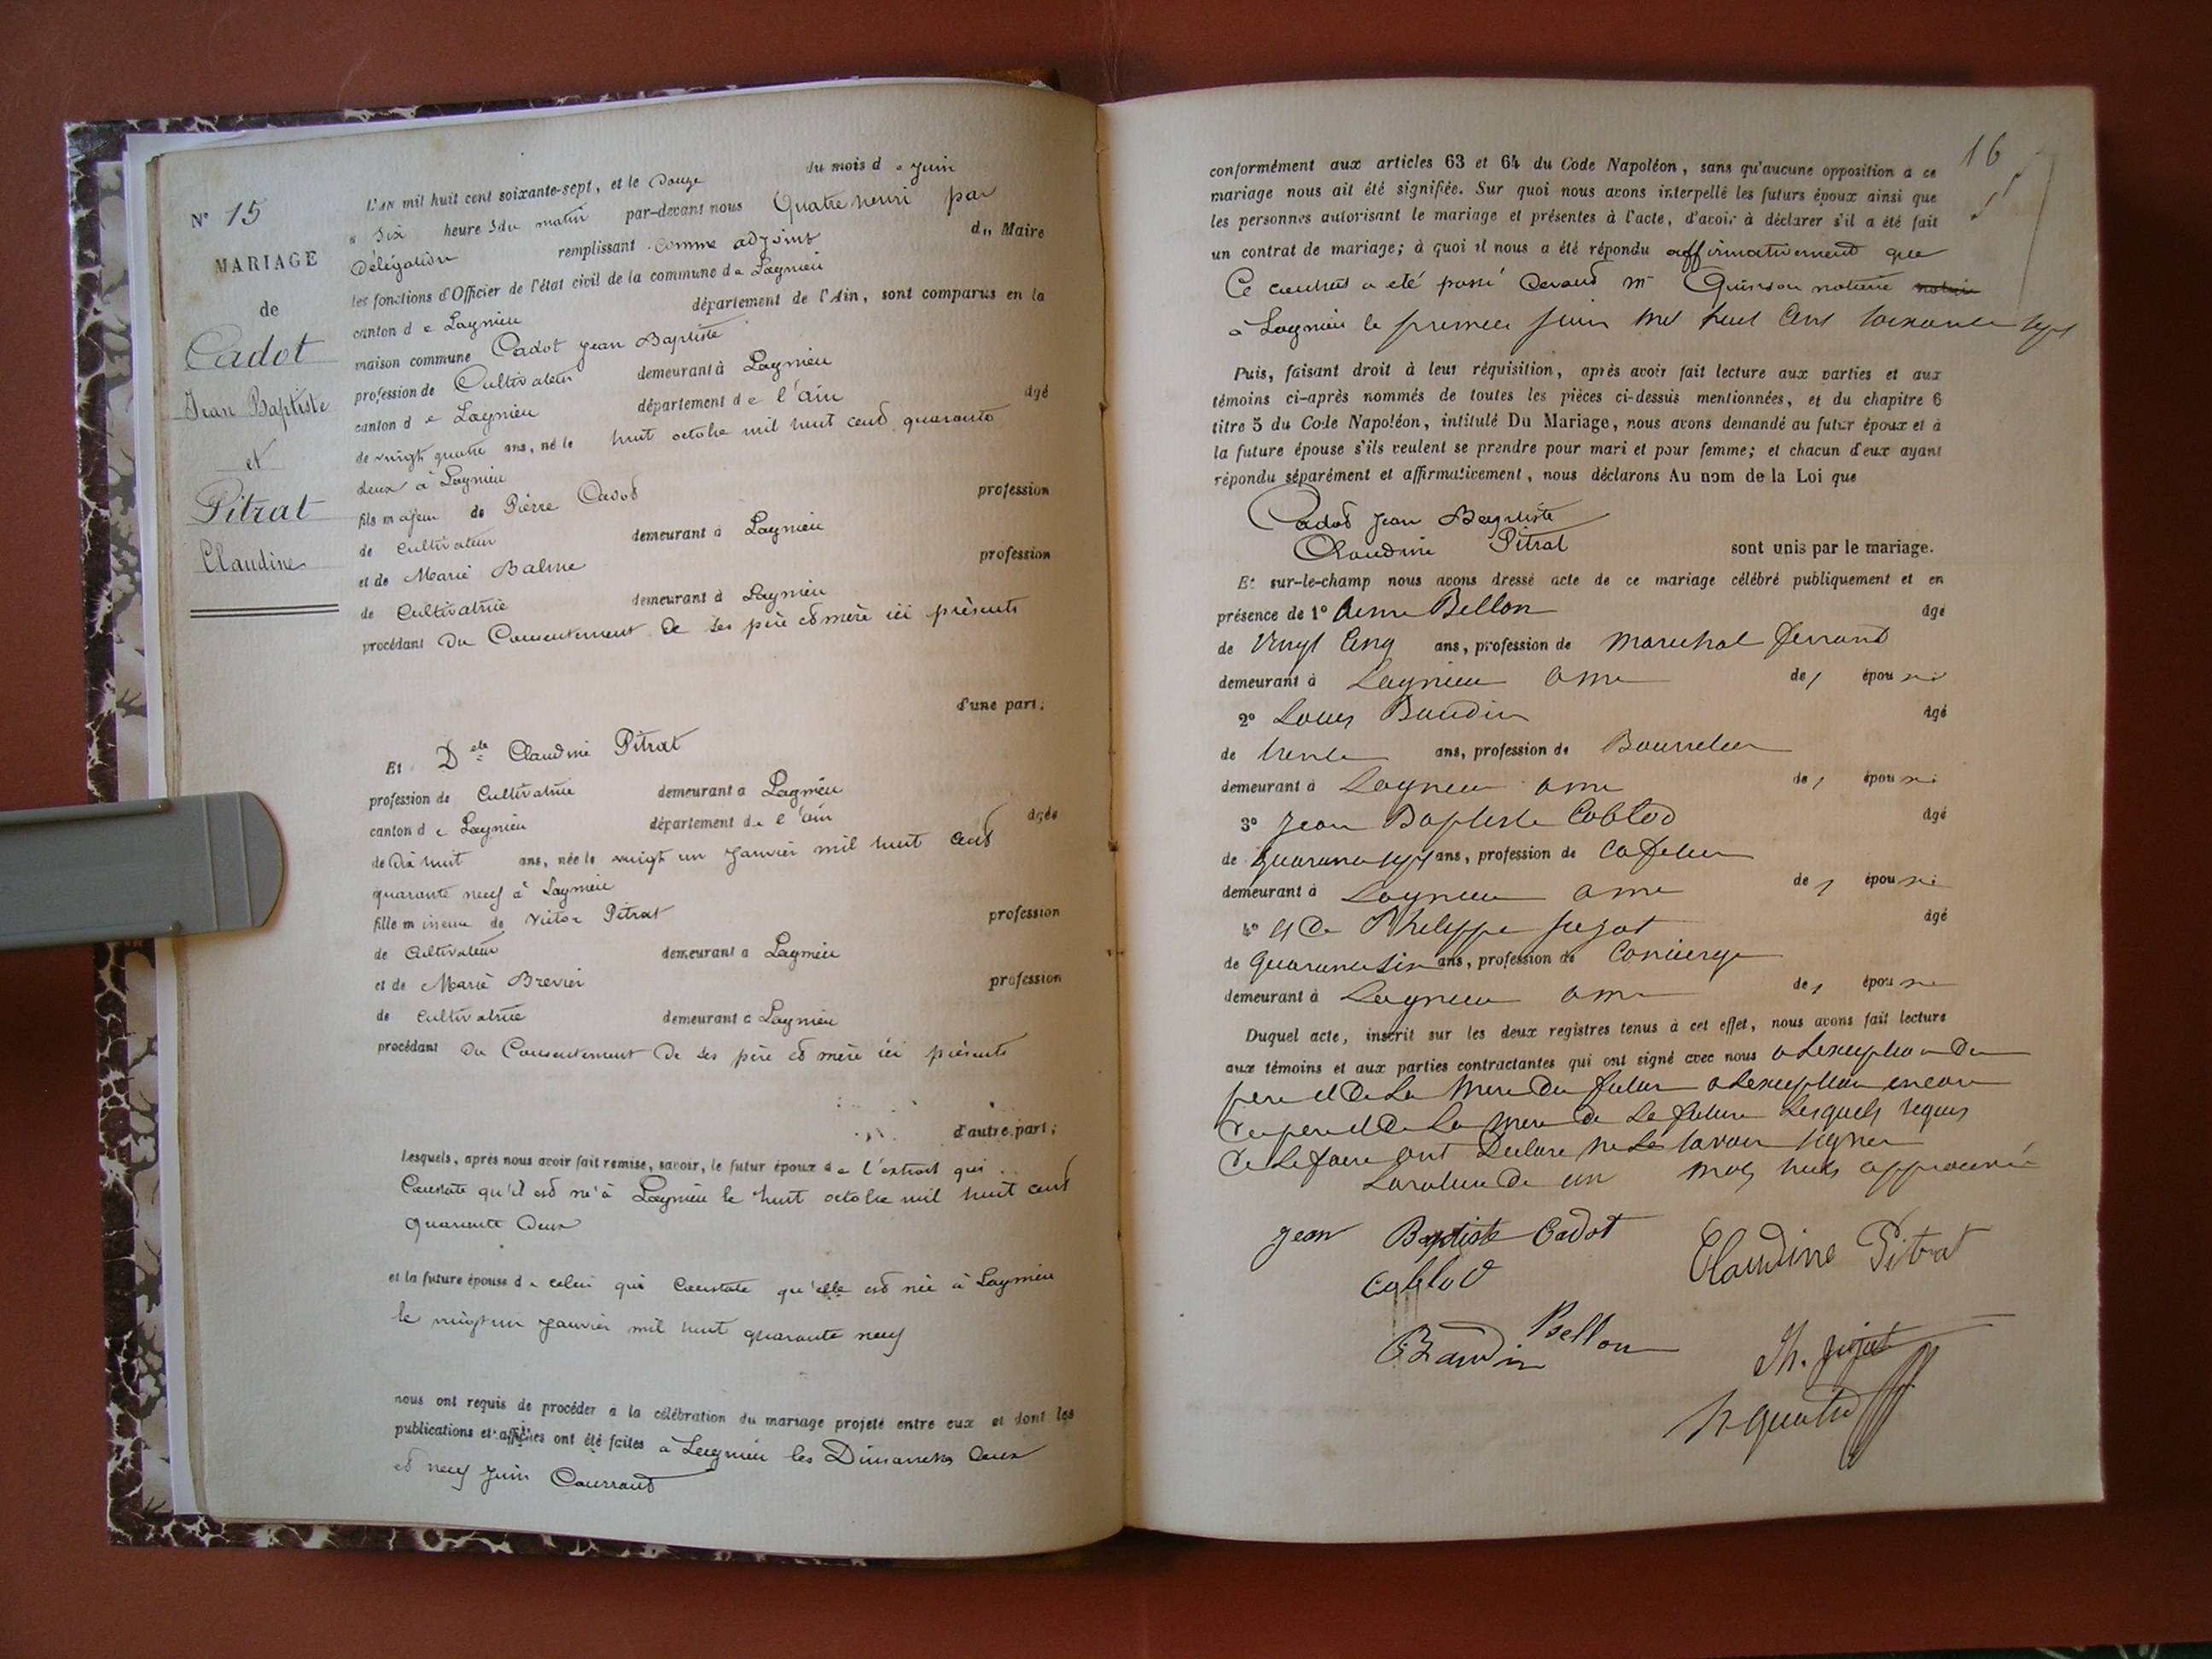 N° 15
MARIAGE
de
Cadot
Jean Baptiste
et
Pitrat
Claudine
L'AN mil huit cent soixante-sept, et le Douze du mois de Juin
à Six heures du matin par-devant nous Quatre henri par
Délégation remplissant comme adjoint du Maire
les fonctions d'Officier de l'état civil de la commune de Lagnieu
canton de Lagnieu département de l'Ain, sont comparus en la
maison commune Cadot Jean Baptiste
profession de Cultivateur demeurant à Lagnieu
canton de Lagnieu département de l'ain âgé
de vingt quatre ans, né le huit octobre mil huit cent quarante
deux à Lagnieu
fils majeur de Pierre Cadot profession
de Cultivateur demeurant à Lagnieu
et de Marie Balme profession
de Cultivatrice demeurant à Lagnieu
procédant Du Consentement De Ses père et mère ici présents
d'une part;
Et Dlle Claudine Pitrat
profession de Cultivatrice demeurant à Lagnieu
canton de Lagnieu département de l'ain âgée
de Dix huit ans, née le vingt un Janvier mil huit cent
quarante neuf à Lagnieu
fille mineure de Victor Pitrat profession
de Cultivateur demeurant à Lagnieu
et de Marie Brevier profession
de Cultivatrice demeurant à Lagnieu
procédant Du Consentement De Ses père et mère ici présents
d'autre part;
lesquels, après nous avoir fait remise, savoir, le futur époux de l'extrait qui
Constate qu'il est né à Lagnieu le huit octobre mil huit cent
quarante Deux
et la future épouse de celui qui Constate qu'elle est née à Lagnieu
le vingt un Janvier mil huit quarante neuf
nous ont requis de procéder à la célébration du mariage projeté entre eux et dont les
publications et affiches ont été faites à Lagnieu les Dimanches Deux
et neuf Juin Courrant
16
conformément aux articles 63 et 64 du Code Napoléon, sans qu'aucune opposition à ce
mariage nous ait été signifiée. Sur quoi nous avons interpellé les futurs époux ainsi que
les personnes autorisant le mariage et présentes à l'acte, d'avoir à déclarer s'il a été fait
un contrat de mariage; à quoi il nous a été répondu affirmativement que
Ce contrat a été passé Devant Me Quinson notaire
à Lagnieu le premier Juin mil huit Cent Soixante sept
Puis, faisant droit à leur réquisition, après avoir fait lecture aux parties et aux
témoins ci-après nommés de toutes les pièces ci-dessus mentionnées, et du chapitre 6
titre 5 du Code Napoléon, intitulé Du Mariage, nous avons demandé au futur époux et à
la future épouse s'ils veulent se prendre pour mari et pour femme; et chacun d'eux ayant
répondu séparément et affirmativement, nous déclarons Au nom de la Loi que
Cadot Jean Baptiste
Claudine Pitrat sont unis par le mariage.
Et sur-le-champ nous avons dressé acte de ce mariage célébré publiquement et en
présence de 1° Bellon âgé
de Vingt Cinq ans, profession de Marechal ferrand
demeurant à Lagnieu ami des époux
2° Louis Baudin âgé
de trente ans, profession de Bourrelier
demeurant à Lagnieu ami des époux
3° Jean Baptiste Cablod âgé
de quarante sept ans, profession de Cafetier
demeurant à Lagnieu ami des époux
4° et De Philippe Jujat âgé
de quarante six ans, profession de Concierge
demeurant à Lagnieu ami des époux
Duquel acte, inscrit sur les deux registres tenus à cet effet, nous avons fait lecture
aux témoins et aux parties contractantes qui ont signé avec nous a Lexception Du
pere et De La Mere Du futur a Lexception encore
Du pere et De La mere De La future Lesquels requis
De Le faire ont Declare ne Le savoir signer
La rature De un mot nuls approuvé
Jean Baptiste Cadot
Claudine Pitrat
Cablod
Bellon
Baudin
Ph. Jujat
h quatre